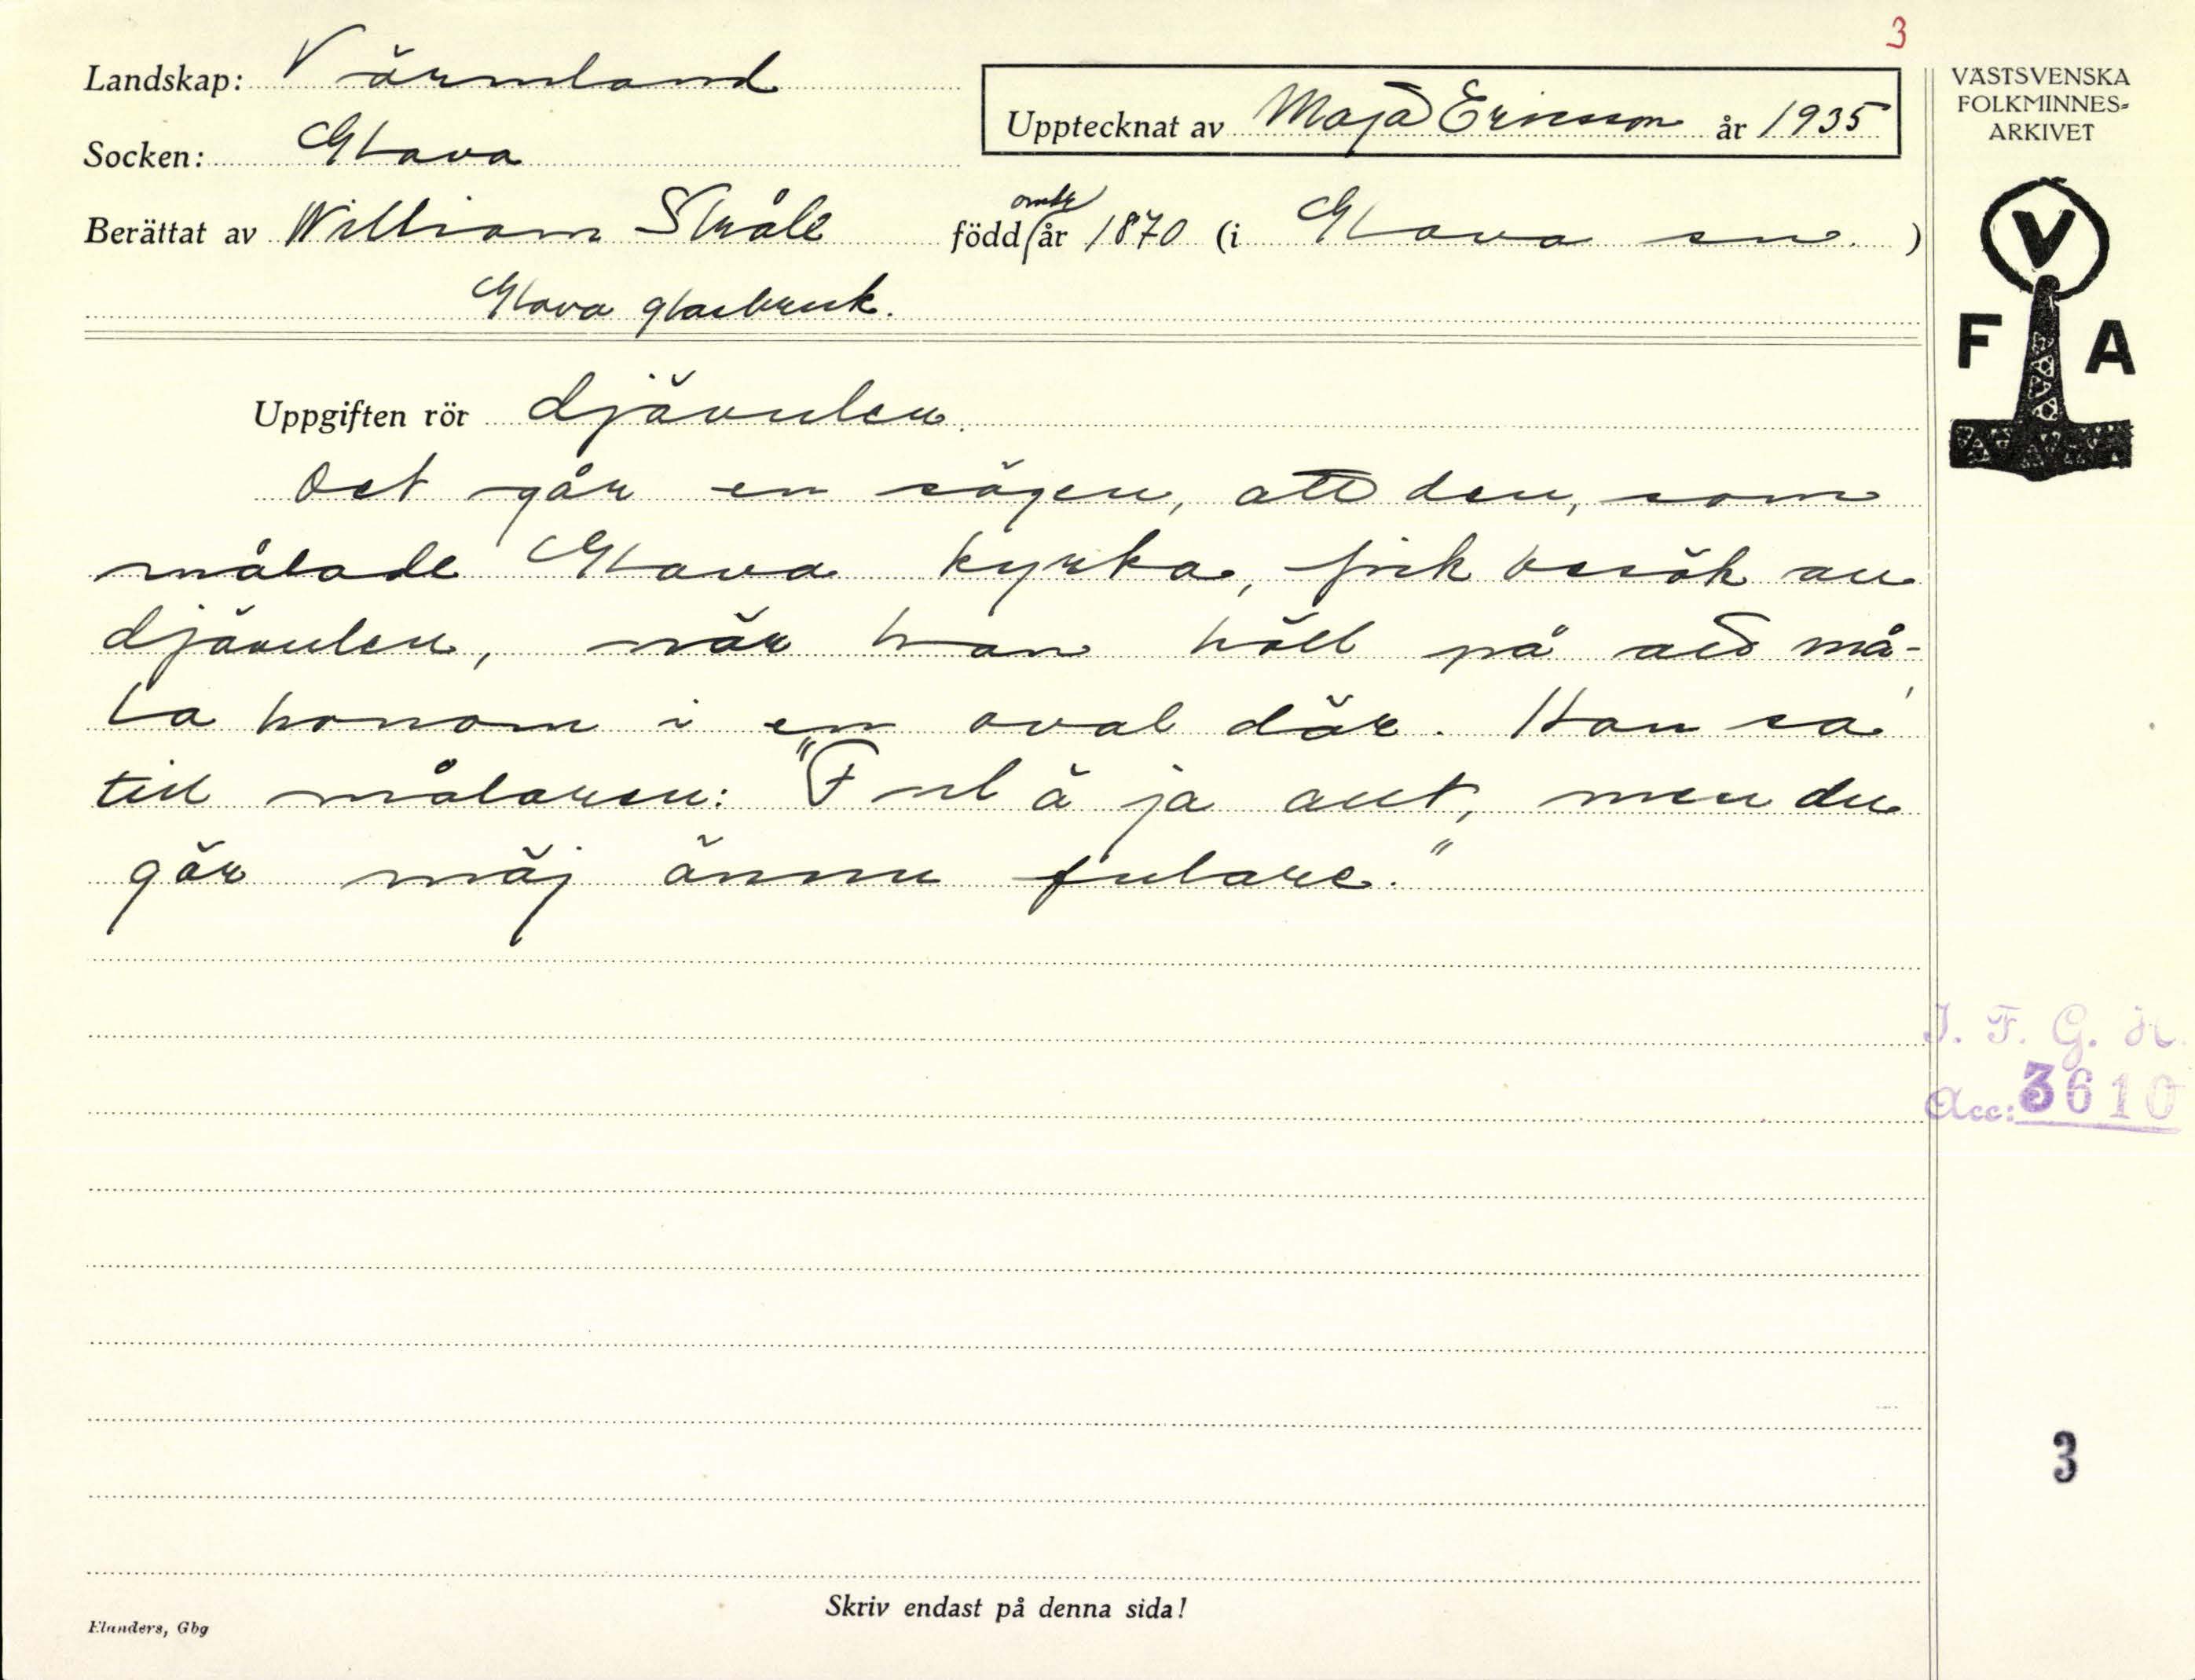 3
Landskap: Värmland
Upptecknat av Maja Ericsson år 1935
Socken: Glava
Berättat av William Stråle född omkr år 1870 (i Glava sn.)
Glava glasbruk.
VÄSTSVENSKA
FOLKMINNES-
ARKIVET
V
F A
Uppgiften rör djävulen.
Det går en sägen, att den, som
målade Glava kyrka, fick besök av
djävulen, när han höll på att må-
la honom i en oval där. Han sa'
till målaren: "Ful ä ja allt, men du
gör mäj ännu fulare."
I. F. G. H.
Acc: 3610
3
Skriv endast på denna sida!
Elanders, Gbg